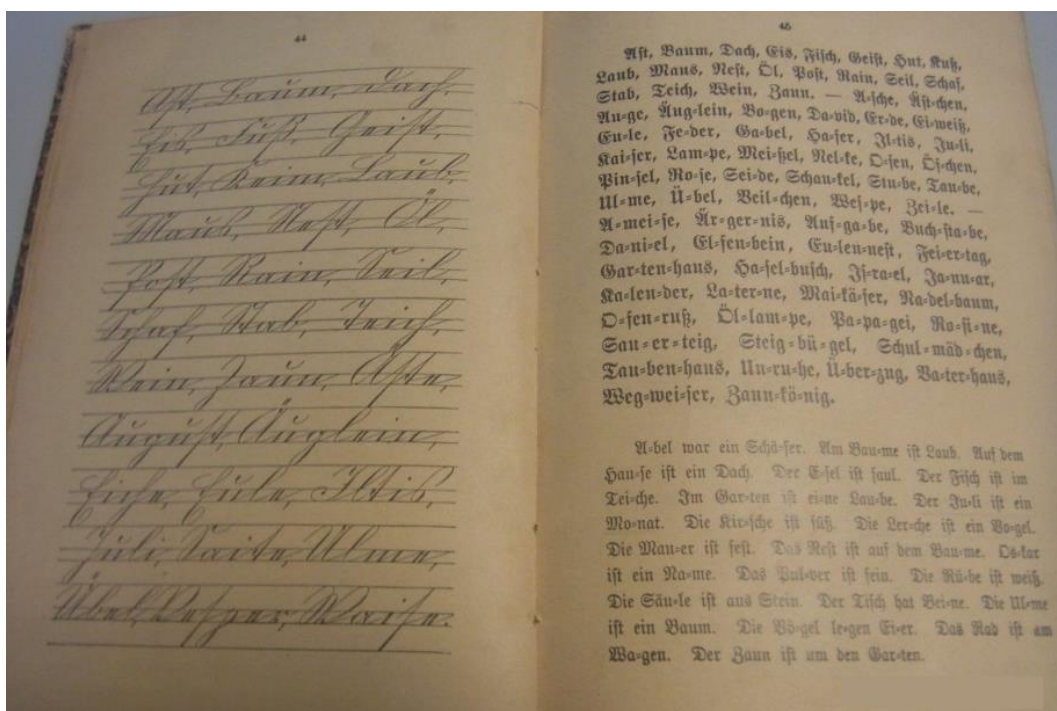 44
Ast, Baum, Dach,
Eis, Fuß, Geist,
Hut, Keim, Laub,
Maus, Nest, Öl,
Post, Rain, Seil,
Schaf, Stab, Teich,
Wein, Zaun, Äste,
August, Äuglein,
Eiche, Eule, Iltis,
Juli, Saite, Ulme,
Übel, Vesper, Waise.
45
Ast, Baum, Dach, Eis, Fisch, Geist, Hut, Kuß,
Laub, Maus, Nest, Öl, Post, Rain, Seil, Schaf,
Stab, Teich, Wein, Zaun. — A-sche, Äst-chen,
Au-ge, Äug-lein, Bo-gen, Da-vid, Er-de, Ei-weiß,
Eu-le, Fe-der, Ga-bel, Ha-fer, Il-tis, Ju-li,
Kai-ser, Lam-pe, Mei-ßel, Nel-ke, O-fen, Öf-chen,
Pin-sel, Ro-se, Sei-de, Schau-kel, Stu-be, Tau-be,
Ul-me, Ü-bel, Veil-chen, Wes-pe, Zei-le. —
A-mei-se, Är-ger-nis, Auf-ga-be, Buch-sta-be,
Da-ni-el, El-fen-bein, Eu-len-nest, Fei-er-tag,
Gar-ten-haus, Ha-sel-busch, Is-ra-el, Ja-nu-ar,
Ka-len-der, La-ter-ne, Mai-kä-fer, Na-del-baum,
O-fen-ruß, Öl-lam-pe, Pa-pa-gei, Ro-si-ne,
Sau-er-teig, Steig-bü-gel, Schul-mäd-chen,
Tau-ben-haus, Un-ru-he, Ü-ber-zug, Va-ter-haus,
Weg-wei-ser, Zaun-kö-nig.
A-bel war ein Schä-fer. Am Bau-me ist Laub. Auf dem
Hau-se ist ein Dach. Der E-sel ist faul. Der Fisch ist im
Tei-che. Im Gar-ten ist ei-ne Lau-be. Der Ju-li ist ein
Mo-nat. Die Kir-sche ist süß. Die Ler-che ist ein Vo-gel.
Die Mau-er ist fest. Das Nest ist auf dem Bau-me. Os-kar
ist ein Na-me. Das Pul-ver ist fein. Die Rü-be ist weiß.
Die Säu-le ist aus Stein. Der Tisch hat Bei-ne. Die Ul-me
ist ein Baum. Die Vö-gel le-gen Ei-er. Das Rad ist am
Wa-gen. Der Zaun ist um den Gar-ten.